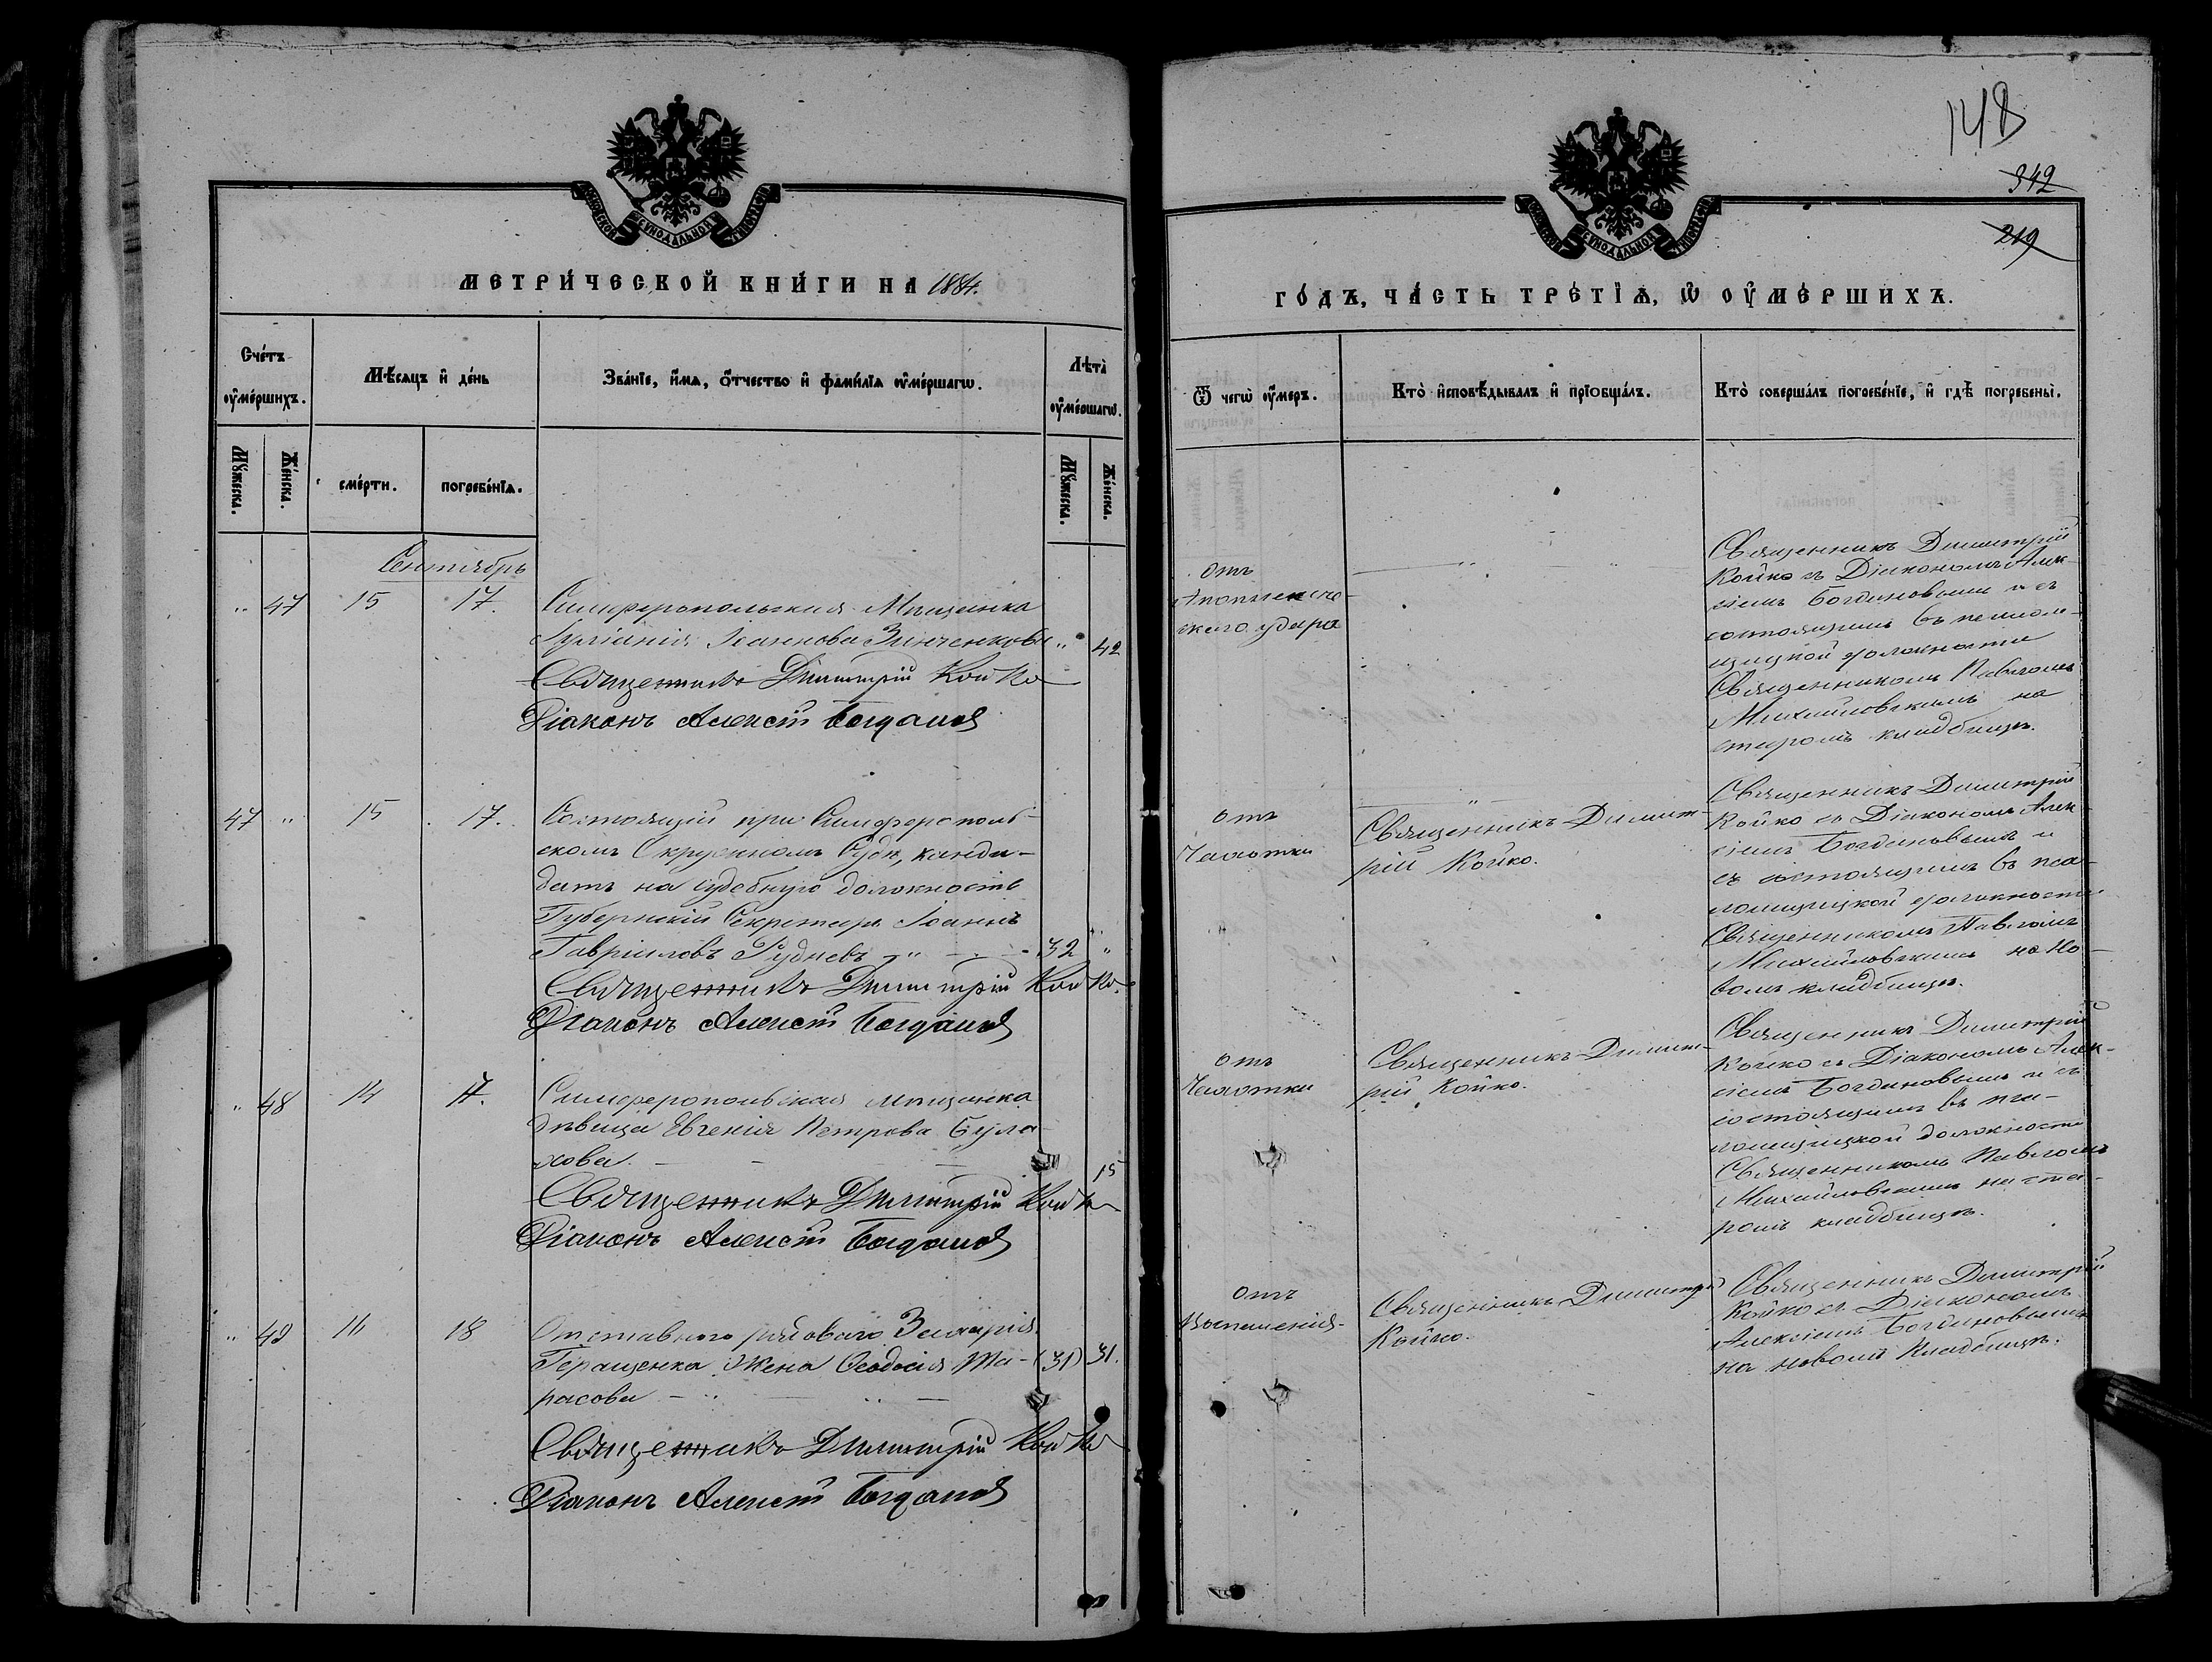 148
342
219
МЕТРИ́ЧЕСКОЙ КНИ́ГИ НА 1884.
ГО́ДЪ, ЧА́СТЬ ТРЕ́ТІѦ, Ѡ҆ ОУ҆МЕ́РШИХЪ.
Сче́тъ оу҆ме́ршихъ.
Мѣ́сяцъ и҆ де́нь
Зва́нїе, и҆́мя, ѻ҆́тчество и҆ фами́лїя оу҆ме́ршагѡ.
Лѣ́та оу҆ме́ршагѡ.
Ѿ чегѡ̀ оу҆́меръ.
Кто̀ и҆сповѣ́дывалъ и҆ прїобща́лъ.
Кто̀ соверша́лъ погребе́нїе, и҆ гдѣ̀ погребены̀.
Мꙋ́жеска.
Же́нска.
сме́рти.
погребе́нїя.
Мꙋ́жеска.
Же́нска.
Сентябрь
" 47 15 17.
Симферопольская Мѣщанка
Іуліанія Іоаннова Зинченкова " 42
Священникъ Димитрій Койко
Діаконъ Алексій Богданов
отъ
Апоплексиче-
скаго удара
Священникъ Димитрій
Койко съ Діакономъ Алек-
сіемъ Богдановымъ и съ
состоящимъ въ псалом-
щицкой должности
Священникомъ Павломъ
Михайловскимъ на
старомъ кладбищѣ.
47 " 15 17.
Состоящій при Симферополь-
скомъ Окружномъ Судѣ, канди-
датъ на судебную должность
Губернскій Секретарь Іоаннъ
Гавріиловъ Рудневъ 32 "
Священникъ Димитрій Койко
Діаконъ Алексій Богданов
отъ
Чахотки
Священникъ Димит-
рій Койко.
Священникъ Димитрій
Койко съ Діакономъ Алек-
сіемъ Богдановымъ и
съ состоящимъ въ пса-
ломщицкой должности
Священникомъ Павломъ
Михайловскимъ на Но-
вомъ кладбищѣ.
" 48 14 17.
Симферопольская мѣщанка
дѣвица Евгенія Петрова Була-
хова. 15
Священникъ Димитрій Койко
Діаконъ Алексій Богданов
отъ
Чахотки
Священникъ Димит-
рій Койко.
Священникъ Димитрій
Койко съ Діакономъ Алек-
сіемъ Богдановымъ и съ
состоящимъ въ пса-
ломщицкой должности
Священникомъ Павломъ
Михайловскимъ на ста-
ромъ кладбищѣ.
" 49 16 18
Отставного рядоваго Захарія
Геращенка Жена Ѳеодосія Та- (31) 31.
расова
Священникъ Димитрій Койко
Діаконъ Алексій Богданов
отъ
Воспаленія
Священникъ Димитрій
Койко.
Священникъ Димитрій
Койко съ Діакономъ
Алексіемъ Богдановымъ
на новомъ Кладбищѣ.